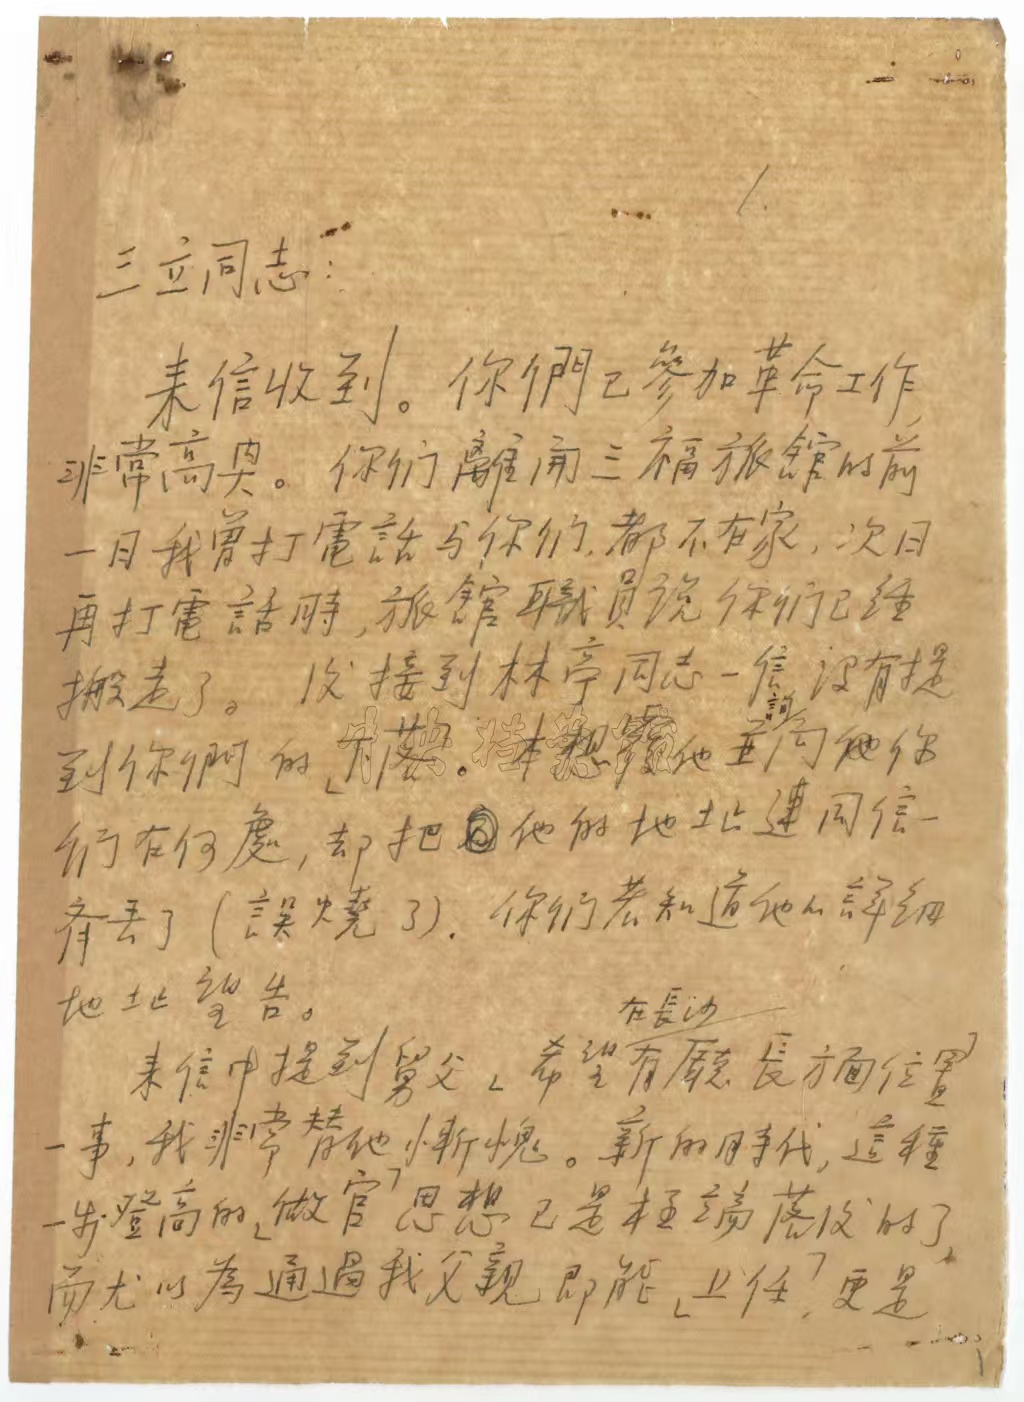 1.
三立同志：
来信收到。你們已參加革命工作，
非常高興。你们離開三福旅館的前
一日我曾打電話与你们，都不在家，次日
再打電話時，旅館職員说你们已經
搬走了。後接到林亭同志一信，没有提
到你們的「下落。本想覆他並詢问他你
们在何處，却把他的地址連同信一
齊丟了（誤燒了）。你们若知道他的詳細
地址望告。
在長沙
来信中提到舅父「希望有廳長方面位置」
一事，我非常替他慚愧。新的時代，這種
一步登高的「做官」思想已是極端落後的了，
而尤以為通過我父親即能「上任」，更是
中央档案馆